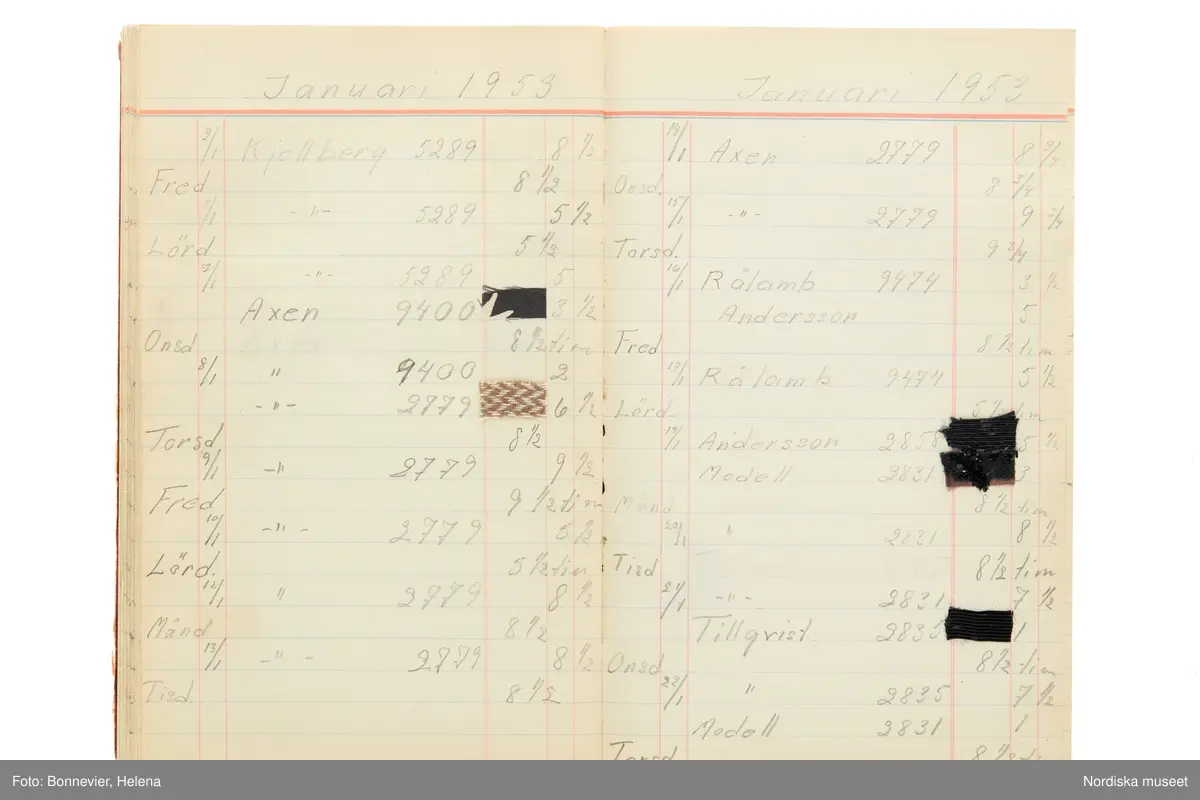 Januari 1953
2/1 Kjellberg 5289 8 1/2
Fred 8 1/2
3/1 -"- 5289 5 1/2
Lörd 5 1/2
7/1 -"- 5289 5
Axen 9400 3 1/2
Onsd 8 1/2 tim
8/1 " 9400 2
-"- 2779 6 1/2
Torsd 8 1/2
9/1 -" 2779 9 1/2
Fred 9 1/2 tim
10/1 -"- 2779 5 1/2
Lörd. 5 1/2 tim
12/1 " 2779 8 1/2
Månd 8 1/2
13/1 -"- 2779 8 1/2
Tisd. 8 1/2
Januari 1953
14/1 Axen 2779 8 3/4
Onsd. 8 3/4
15/1 -"- 2779 9 3/4
Torsd. 9 3/4
16/1 Rålamb 9474 3 1/2
Andersson 5
Fred 8 1/2 tim
17/1 Rålamb 9474 5 1/2
Lörd. 5 1/2 tim
19/1 Andersson 2858 5 1/2
Modell 2831 3
Månd 8 1/2 tim
20/1 " 2831 8 1/2
Tisd 8 1/2 tim
21/1 -"- 2831 7 1/2
Tillqvist 2835 1
Onsd 8 1/2 tim
22/1 " 2835 7 1/2
Modell 2831 1
Torsd
Foto: Bonnevier, Helena
Nordiska museet